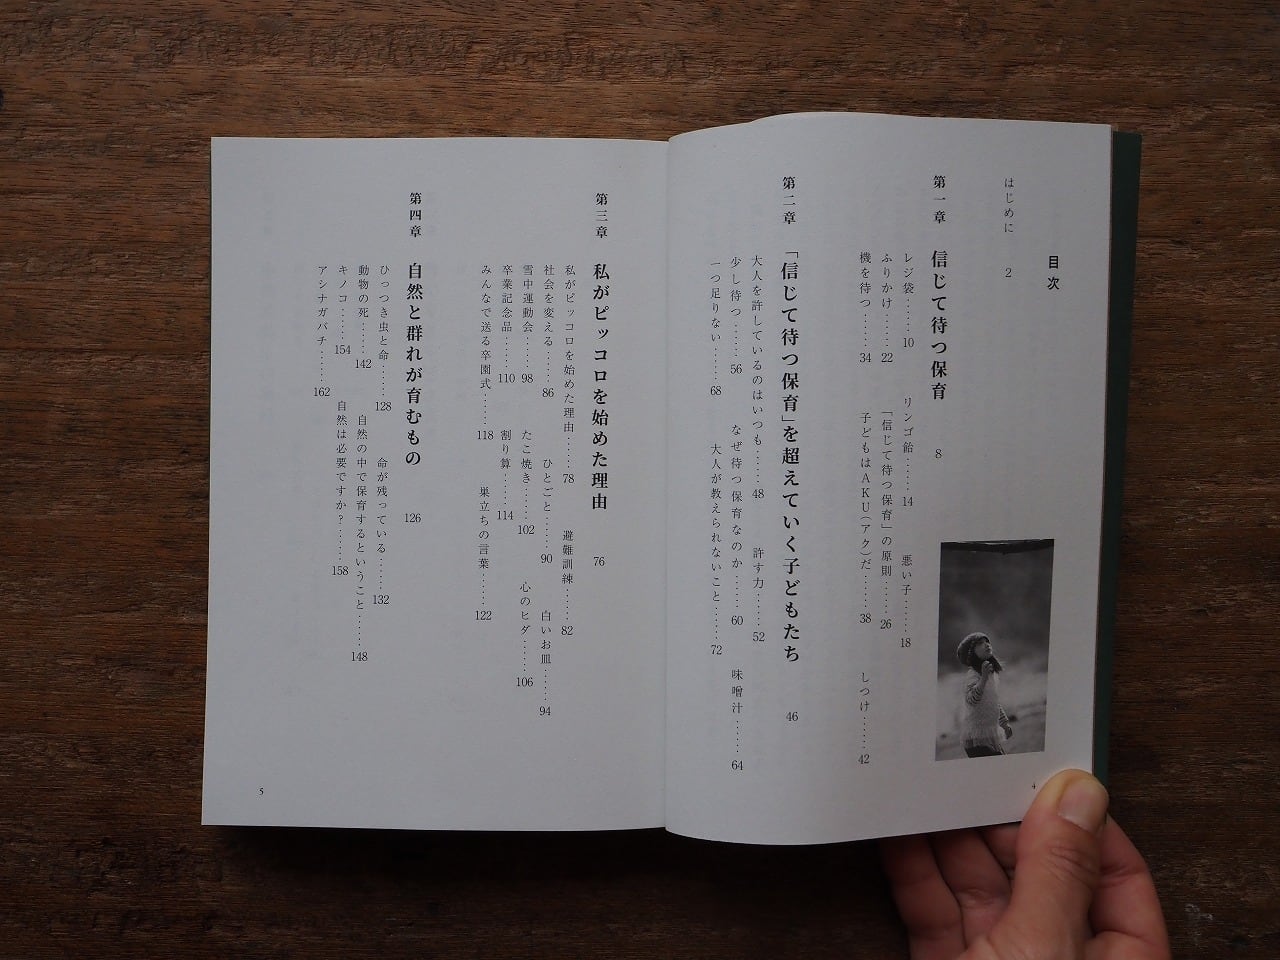 目次
はじめに 2
第一章 信じて待つ保育 8
レジ袋……10 リンゴ飴……14 悪い子……18
ふりかけ……22 「信じて待つ保育」の原則……26
機を待つ……34 子どもはAKU（アク）だ……38 しつけ……42
第二章 「信じて待つ保育」を超えていく子どもたち 46
大人を許しているのはいつも……48 許す力……52
少し待つ……56 なぜ待つ保育なのか……60 味噌汁……64
一つ足りない……68 大人が教えられないこと……72
4
第三章 私がピッコロを始めた理由 76
私がピッコロを始めた理由……78 避難訓練……82
社会を変える……86 ひとごと……90 白いお皿……94
雪中運動会……98 たこ焼き……102 心のヒダ……106
卒業記念品……110 割り算……114
みんなで送る卒園式……118 巣立ちの言葉……122
第四章 自然と群れが育むもの 126
ひっつき虫と命……128 命が残っている……132
動物の死……142 自然の中で保育するということ……148
キノコ……154 自然は必要ですか？……158
アシナガバチ……162
5